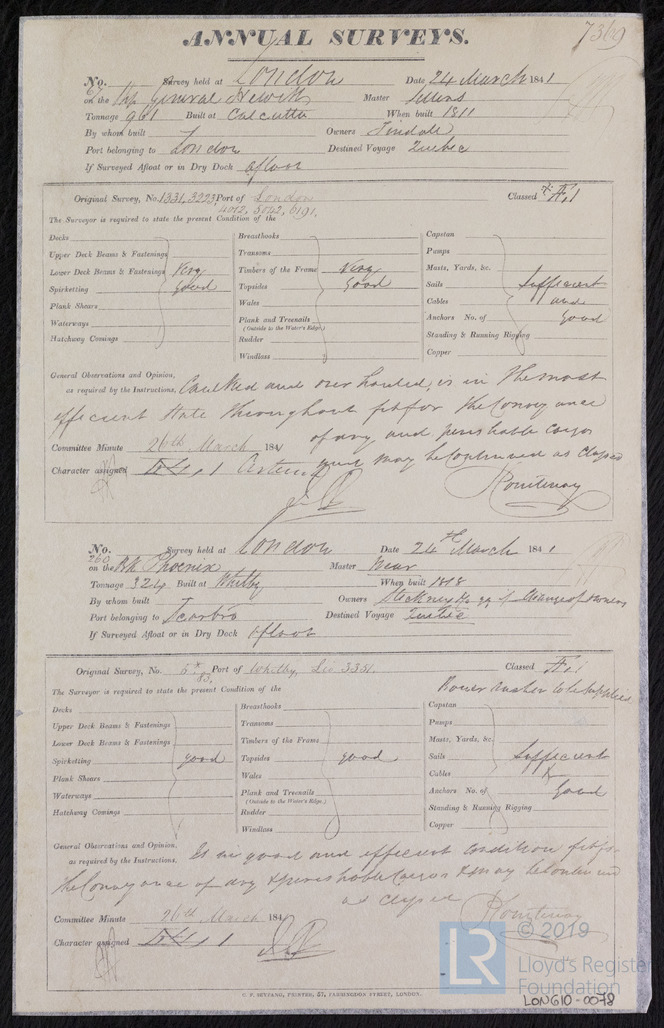 7369
ANNUAL SURVEYS.
No. 67 Survey held at London Date 24 March 1841
on the Ship General Hewitt Master Sellens
Tonnage 961 Built at Calcutta When built 1811
By whom built Owners Tindale
Port belonging to London Destined Voyage Quebec
If Surveyed Afloat or in Dry Dock afloat
Original Survey, No. 1331, 3223 Port of London Classed Æ, 1
4012, 5042, 6191,
The Surveyor is required to state the present Condition of the
Decks Breasthooks Capstan
Upper Deck Beams & Fastenings Transoms Pumps
Lower Deck Beams & Fastenings Very Timbers of the Frame Very Masts, Yards, &c.
Spirketting Good Topsides Good Sails Sufficient
Plank Shears Wales Cables and
Waterways Plank and Treenails Anchors No. of Good
(Outside to the Water's Edge.)
Hatchway Comings Rudder Standing & Running Rigging
Windlass Copper
General Observations and Opinion,
as required by the Instructions. Caulked and over hauled, is in the most
efficient state throughout fit for the Conveyance
of dry and perishable cargo
Committee Minute 26th March 1841
and may be Continued as Classed
Character assigned Æ, 1
Courtenay
No. 260 Survey held at London Date 24th March 1841
on the Bk Phoenix Master Wear
Tonnage 324 Built at Whitby When built 1818
By whom built Owners Change of owners
Port belonging to Scarbro Destined Voyage Quebec
If Surveyed Afloat or in Dry Dock Afloat
Original Survey, No. 83, Port of Whitby, Lis 3351. Classed Æ, 1
The Surveyor is required to state the present Condition of the
Decks Breasthooks Capstan
Upper Deck Beams & Fastenings Transoms Pumps
Lower Deck Beams & Fastenings Timbers of the Frame Masts, Yards, &c.
Spirketting good Topsides good Sails Sufficient
Plank Shears Wales Cables &
Waterways Plank and Treenails Anchors No. of Good
(Outside to the Water's Edge.)
Hatchway Comings Rudder Standing & Running Rigging
Windlass Copper
General Observations and Opinion,
as required by the Instructions. Is in good and efficient condition fit for
the Conveyance of dry & perishable Cargos & may be continued
as classed
Courtenay
Committee Minute 26th March 184
Character assigned Æ, 1
C. F. SEYFANG, PRINTER, 57, FARRINGDON STREET, LONDON.
© 2019
LR
Lloyd's Register
Foundation
LON610-0078